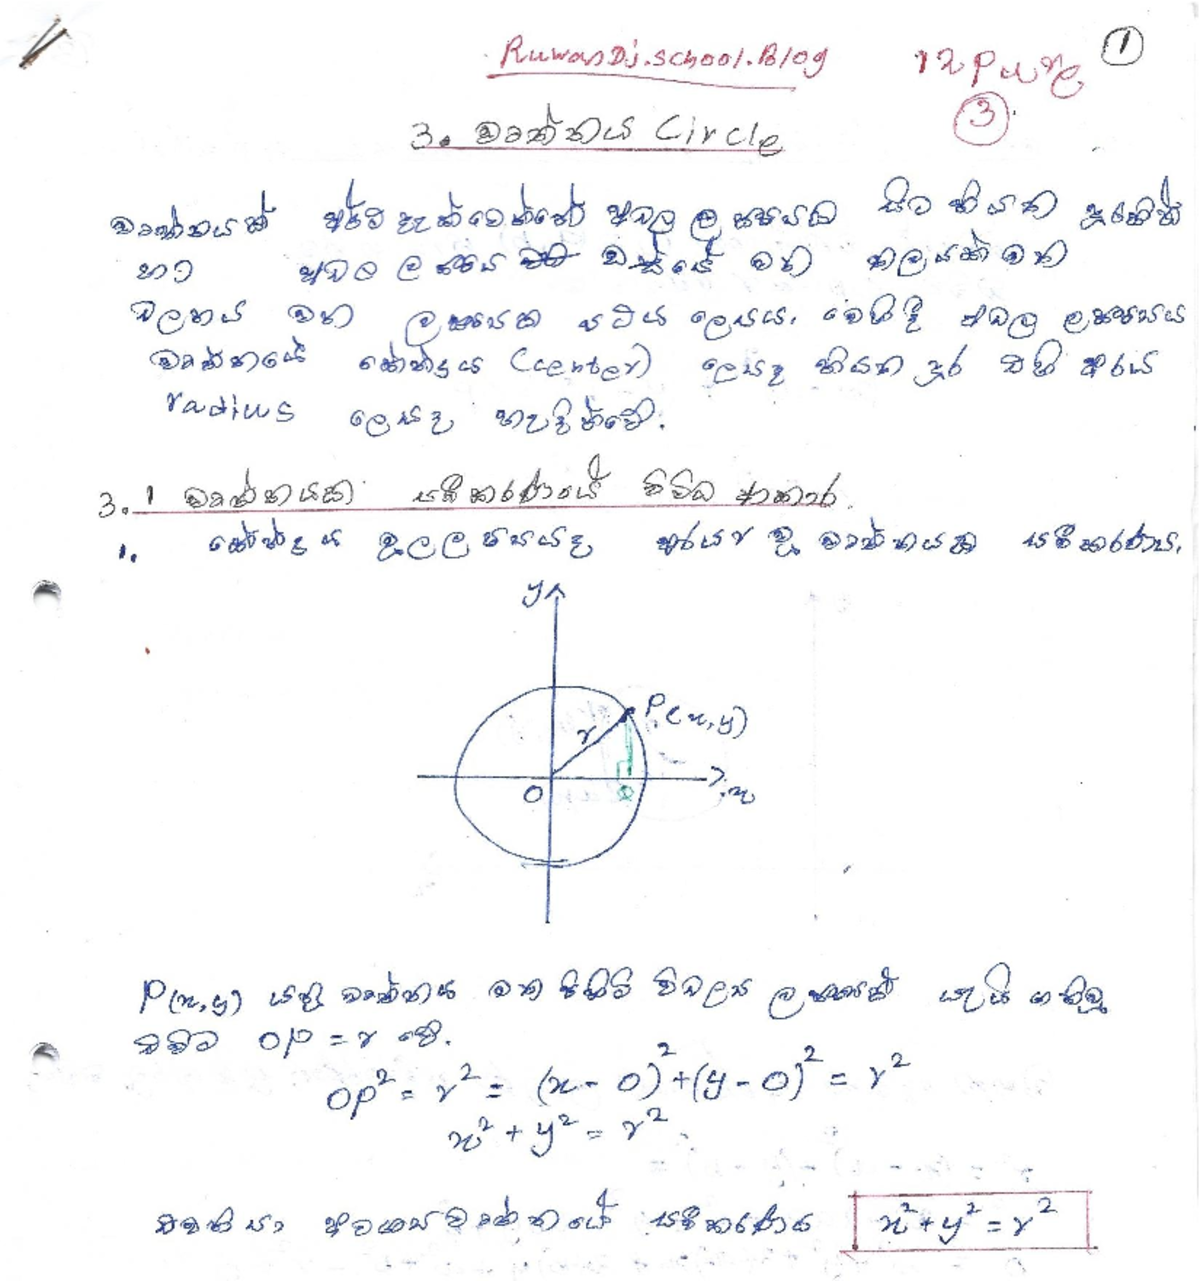 RuwanDj.school.Blog
①
12 P
③
3. වෘත්තය Circle
වෘත්තයක් අර්ථ දැක්වෙන්නේ අචල ලක්ෂ්‍යයක සිට නියත දුරකින්
හා අචල ලක්ෂ්‍යය වටා එක්යේ වන තලයක් මත
චලනය වන ලක්ෂ්‍යක පථය ලෙසය. මෙහිදී අචල ලක්ෂ්‍යය
වෘත්තයේ කේන්ද්‍රය (center) ලෙසද නියත දුර එහි අරය
radius ලෙසද හැඳින්වේ.
3.1 වෘත්තයක සමීකරණයේ විවිධ ආකාර
1. කේන්ද්‍රය මූලලක්ෂ්‍යයද අරය r වූ වෘත්තයක සමීකරණය.
y
P(x,y)
r
O
x
P(x,y) යනු වෘත්තය මත පිහිටි විචල්‍ය ලක්ෂ්‍යක් යැයි ගනිමු
එවිට OP = r වේ.
OP² = r² = (x - 0)² + (y - 0)² = r²
x² + y² = r²
එමනිසා අවශ්‍ය වෘත්තයේ සමීකරණය x² + y² = r²